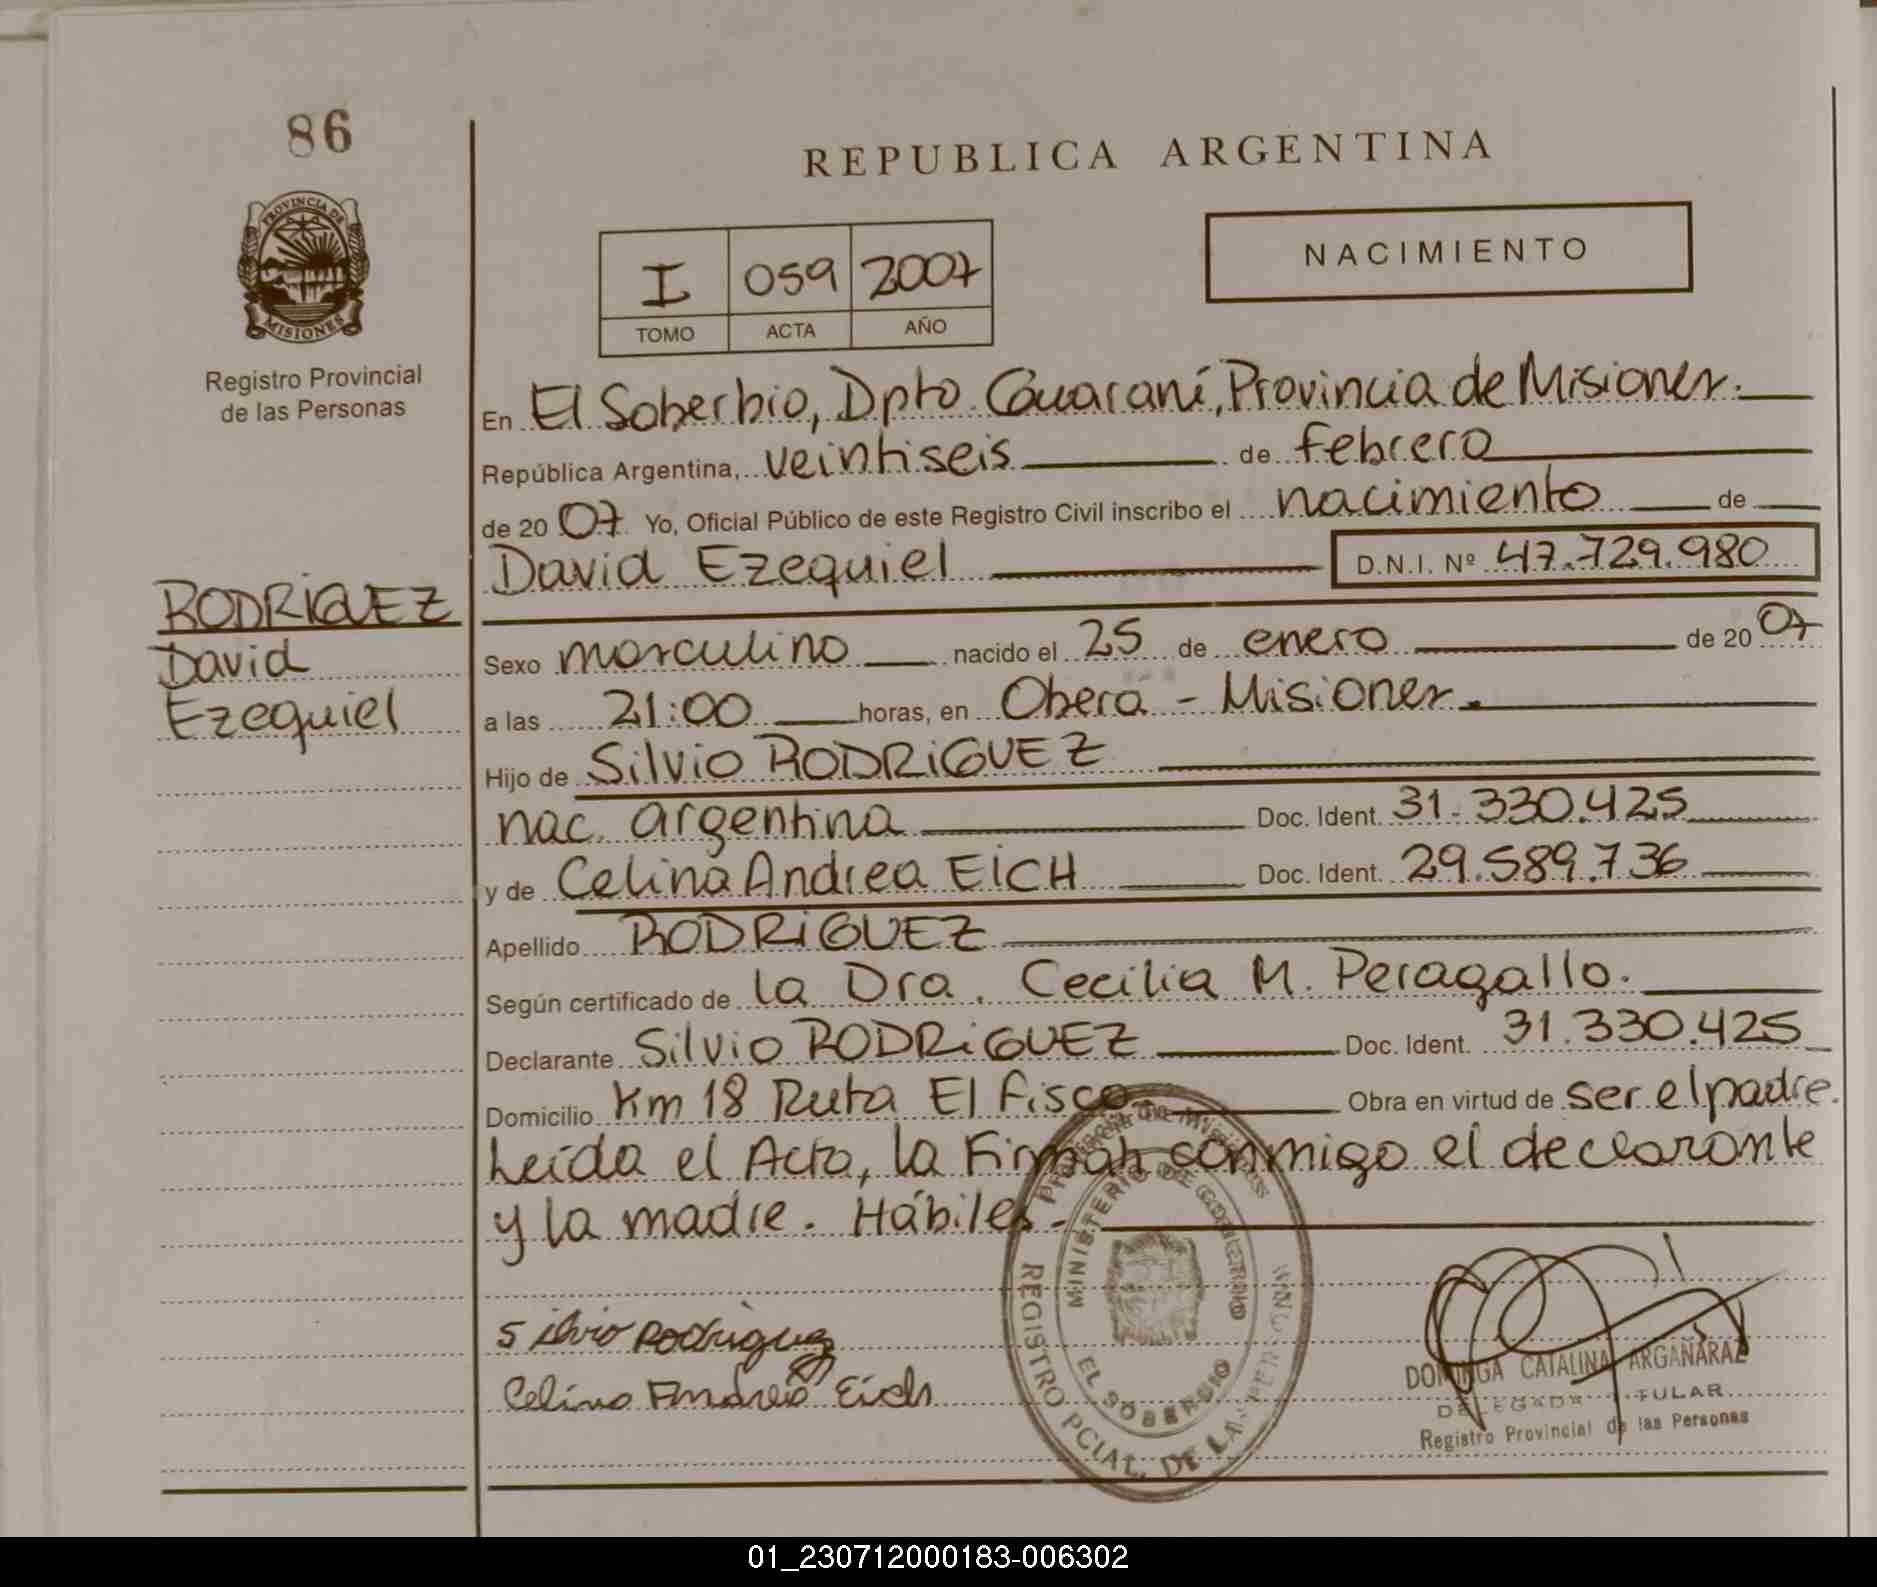 86
PROVINCIA DE
MISIONES
Registro Provincial
de las Personas
RODRIGUEZ
David
Ezequiel
REPUBLICA ARGENTINA
I 059 2007
TOMO ACTA AÑO
NACIMIENTO
En El Soberbio, Dpto. Guaraní, Provincia de Misiones.
República Argentina, veintiseis de febrero
de 2007 Yo, Oficial Público de este Registro Civil inscribo el nacimiento de
David Ezequiel D.N.I. Nº 47.729.980
Sexo masculino nacido el 25 de enero de 2007
a las 21:00 horas, en Obera - Misiones.
Hijo de Silvio RODRIGUEZ
nac. argentina Doc. Ident. 31.330.425
y de Celina Andrea EICH Doc. Ident. 29.589.736
Apellido RODRIGUEZ
Según certificado de la Dra. Cecilia M. Peragallo.
Declarante Silvio RODRIGUEZ Doc. Ident. 31.330.425
Domicilio Km 18 Ruta El Fisco Obra en virtud de ser el padre.
Leída el Acta, la Firman conmigo el declarante
y la madre. Hábiles.-
Silvio Rodriguez
Celina Andrea Eich
Provincia de Misiones
MINISTERIO DE GOBIERNO
EL SOBERBIO
REGISTRO PCIAL. DE LAS PERSONAS
DOMINGA CATALINA ARGAÑARAZ
DELEGADA TITULAR
Registro Provincial de las Personas
01_230712000183-006302